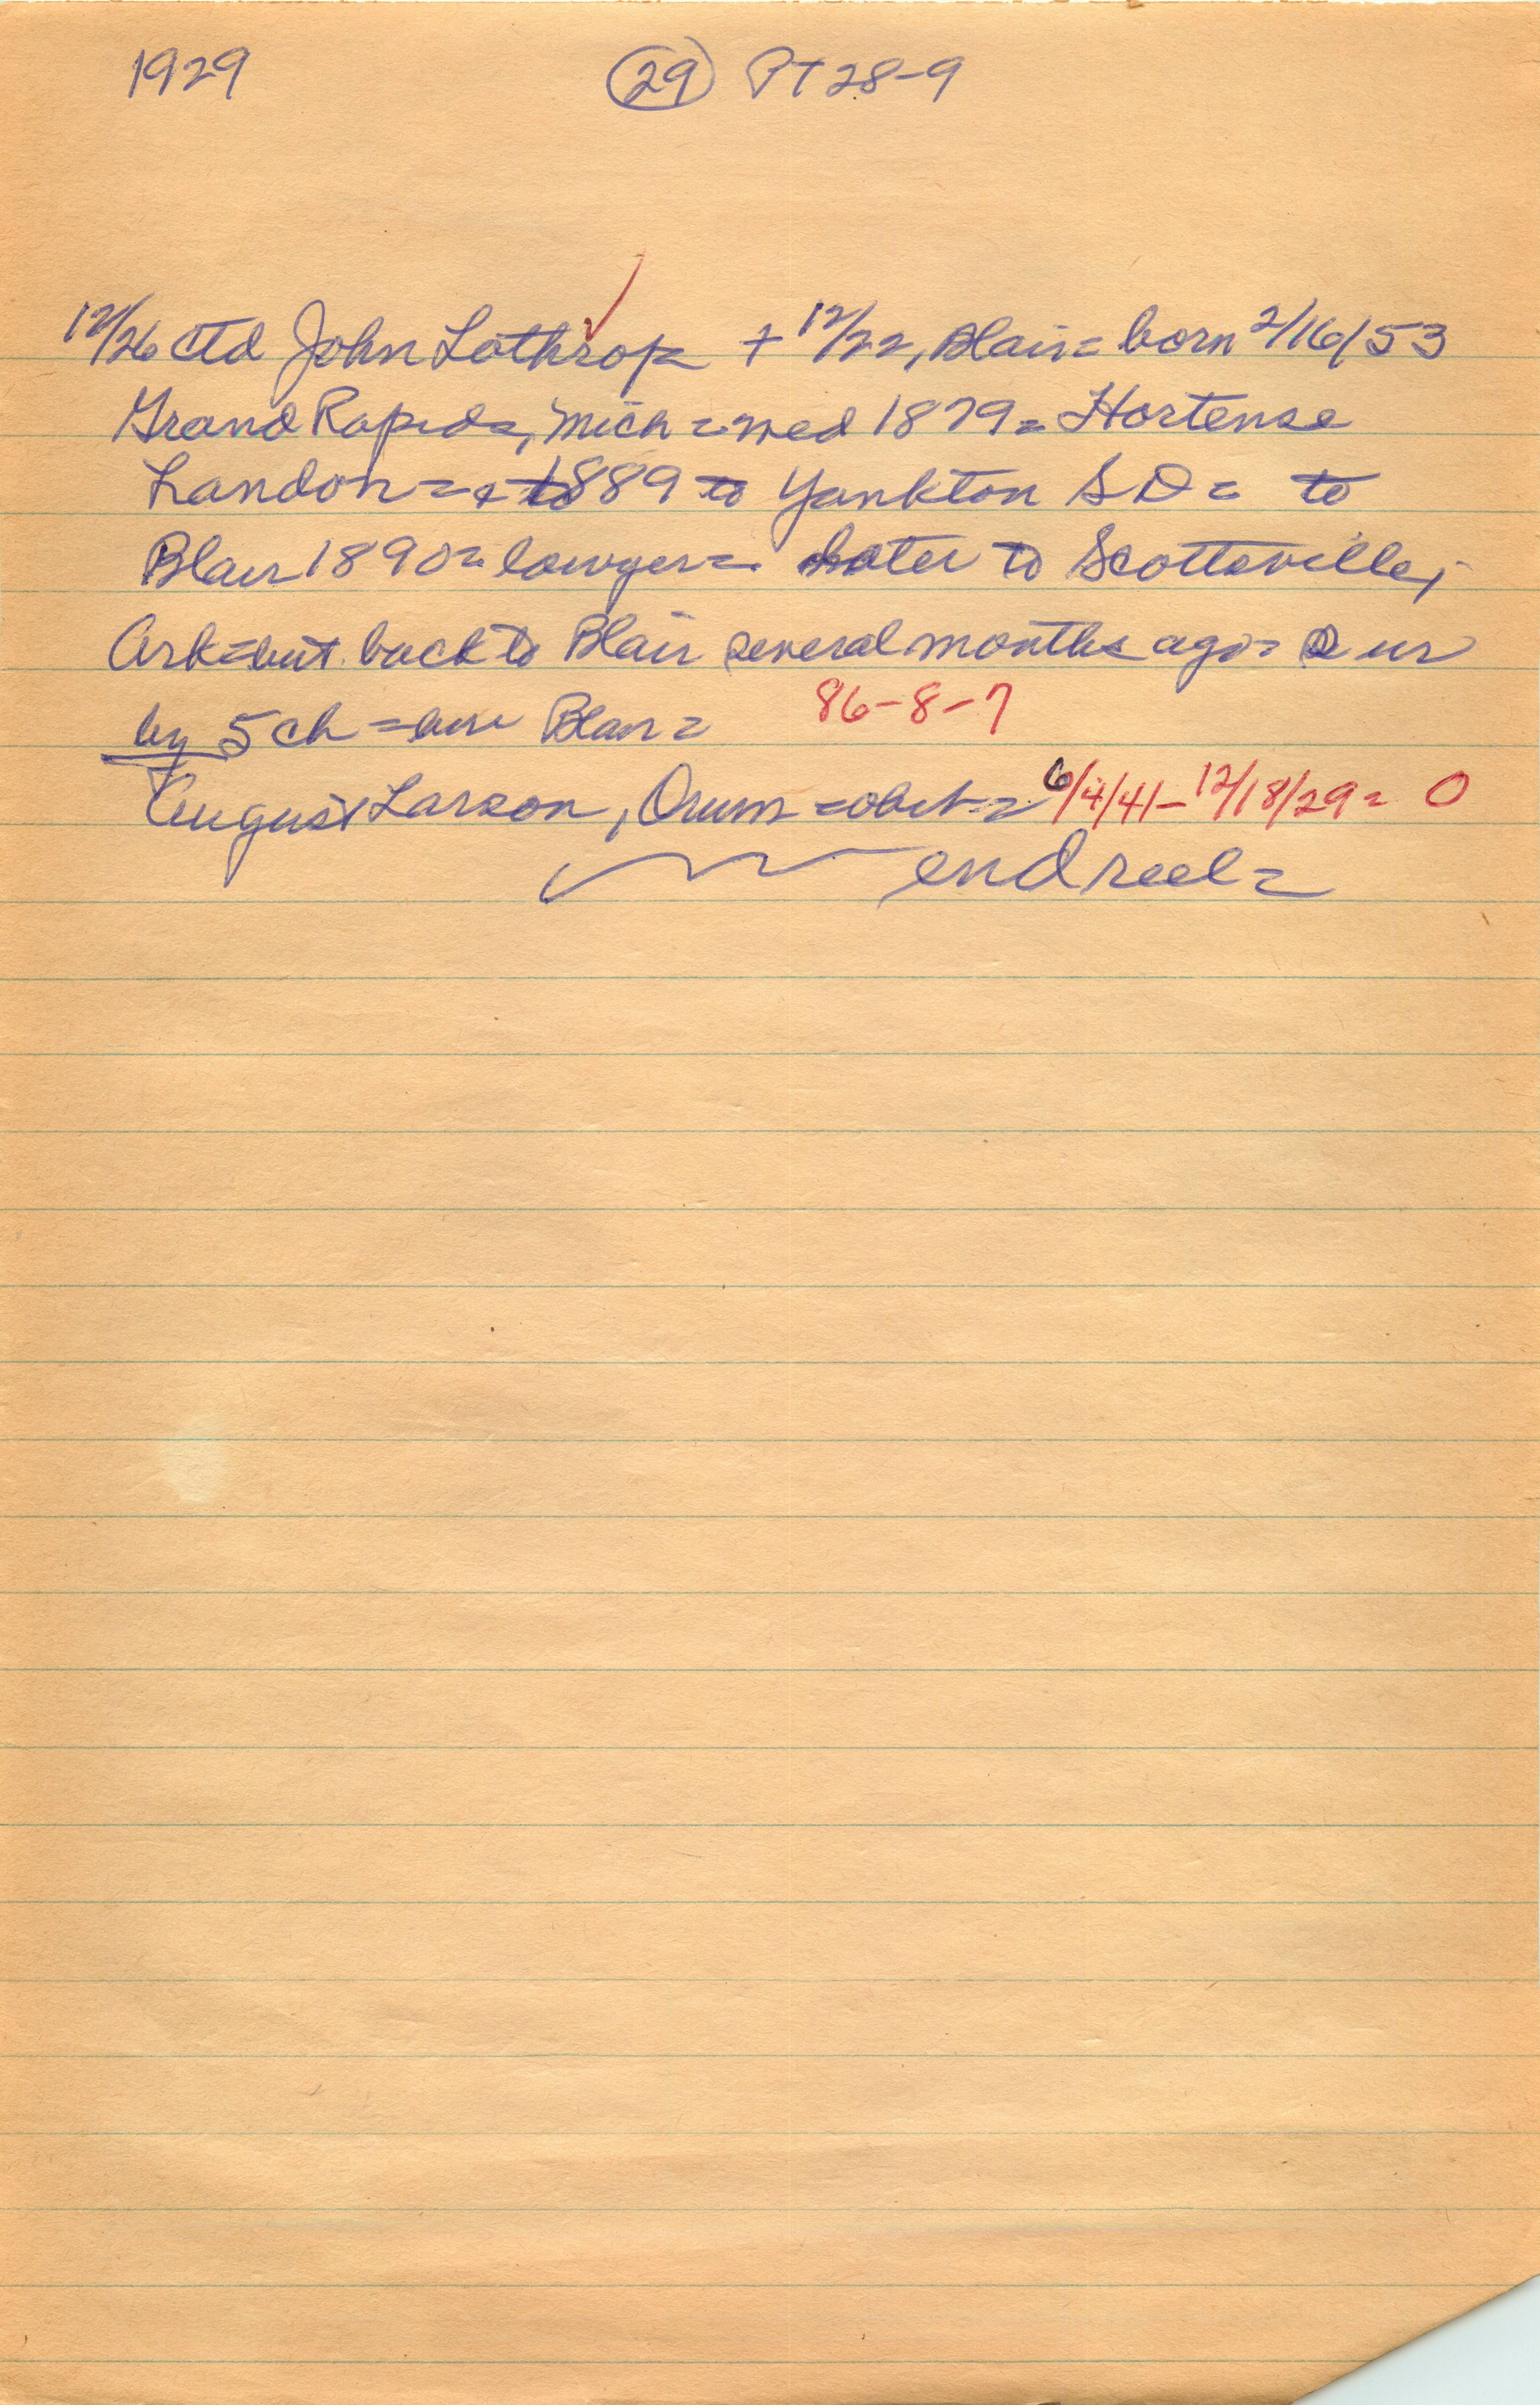 1929 29 PT 28-9
12/26 ctd John Lothrop + 12/22, Blair = born 2/16/53
Grand Rapids, Mich = wed 1879 = Hortense
Landon = 1889 to Yankton SD = to
Blair 1890 = lawyer = later to Scottsville,
Ark = but back to Blair several months ago = sur
by 5 ch = bur Blair = 86-8-7
August Larson, Orum = obit = 6/4/41 - 12/18/29 = 0
end reel =